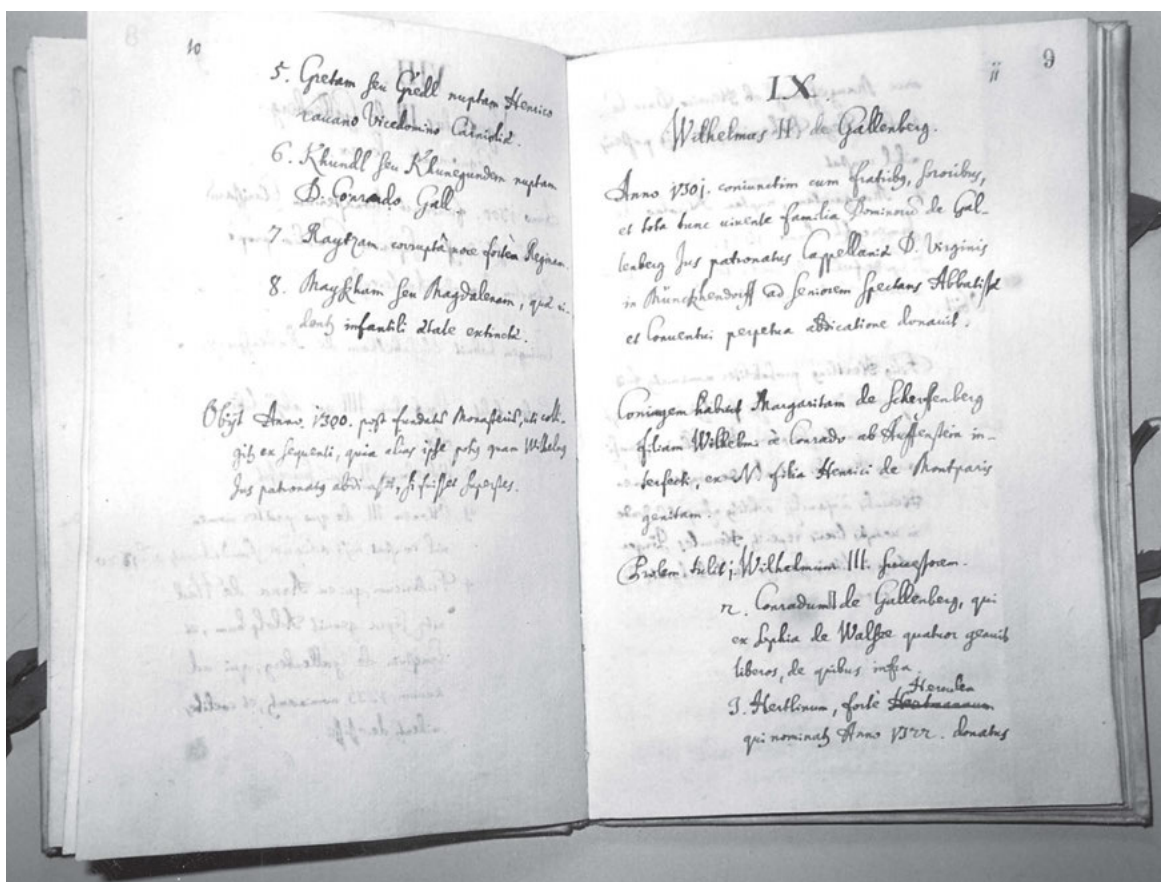 10
5. Gretam seu Gredl nuptam Henrico
Vicedomino Carnioliæ.
6. Khundl seu Khunegundem nuptam
D. Conrado Gall
7. Raytzam corruptâ voce fortè Reginam.
8. Maykham seu Magdalenam, quæ vi-
dentz infantili ætate extinctæ.
Obijt Anno 1300. post fundatū Monasteriū, uti colli-
gitz ex sequenti, quia alias ipse potiq quam Wilhelmq
Jus patronatq abdicasset, si fuisset superstes.
ij 9
IX.
Wilhelmus II. de Gallenberg.
Anno 1301. coniunctim cum fratribq, sororibus,
et tota tunc vivente familia Dominorū de Gal-
lenberg Jus patronatus Cappellaniæ D. Virginis
in Münckhendorff ad seniorem spectans Abbatissæ
et Conventui perpetua abdicatione donavit.
Coniugem habuit Margaritam de Scherffenberg
filiam Wilhelmi à Conrado ab Auffenstein in-
terfecti, ex N. filia Henrici de Montparis
genitam.
Prolem tulit 1. Wilhelmum III. successorem.
2. Conradum II de Gallenberg, qui
ex Sophia de Walsee quatuor genuit
liberos, de quibus infra.
Herculem
3. Hertlinum, fortè Hertmannum
qui nominatz Anno 1322. donatus